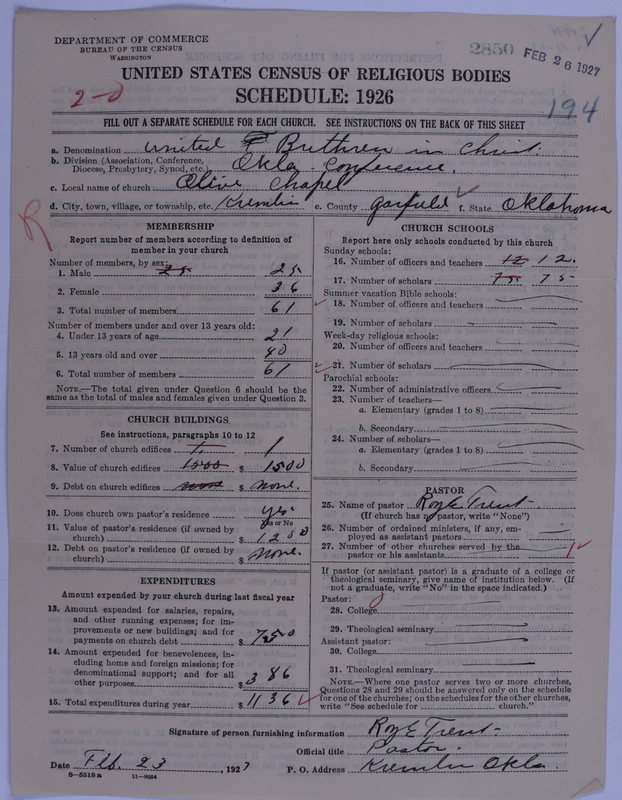 DEPARTMENT OF COMMERCE
BUREAU OF THE CENSUS
WASHINGTON
2850 FEB 26 1927
UNITED STATES CENSUS OF RELIGIOUS BODIES
2-d
SCHEDULE: 1926
194
FILL OUT A SEPARATE SCHEDULE FOR EACH CHURCH. SEE INSTRUCTIONS ON THE BACK OF THIS SHEET
a. Denomination United Brethren in Christ.
b. Division (Association, Conference, Diocese, Presbytery, Synod, etc.) Okla. Conference.
c. Local name of church Olive Chapel
d. City, town, village, or township, etc. Kremlin e. County Garfield f. State Oklahoma
R
MEMBERSHIP
Report number of members according to definition of
member in your church
Number of members, by sex:
1. Male 25 25
2. Female 36
3. Total number of members 61
Number of members under and over 13 years old:
4. Under 13 years of age 21
5. 13 years old and over 40
6. Total number of members 61
NOTE.—The total given under Question 6 should be the
same as the total of males and females given under Question 3.
CHURCH BUILDINGS
See instructions, paragraphs 10 to 12
7. Number of church edifices 1. 1
8. Value of church edifices 1500 $ 1500
9. Debt on church edifices none $ none.
10. Does church own pastor's residence yes.
Yes or No
11. Value of pastor's residence (if owned by
church) $ 1200
12. Debt on pastor's residence (if owned by
church) $ none.
EXPENDITURES
Amount expended by your church during last fiscal year
13. Amount expended for salaries, repairs,
and other running expenses; for im-
provements or new buildings; and for
payments on church debt $ 750
14. Amount expended for benevolences, in-
cluding home and foreign missions; for
denominational support; and for all
other purposes $ 386
15. Total expenditures during year $ 1136
CHURCH SCHOOLS
Report here only schools conducted by this church
Sunday schools:
16. Number of officers and teachers 12 12.
17. Number of scholars 75 75
Summer vacation Bible schools:
18. Number of officers and teachers
19. Number of scholars
Week-day religious schools:
20. Number of officers and teachers
21. Number of scholars
Parochial schools:
22. Number of administrative officers
23. Number of teachers—
a. Elementary (grades 1 to 8)
b. Secondary
24. Number of scholars—
a. Elementary (grades 1 to 8)
b. Secondary
PASTOR
25. Name of pastor Roy E Trent
(If church has no pastor, write "None")
26. Number of ordained ministers, if any, em-
ployed as assistant pastors
27. Number of other churches served by the
pastor or his assistants 1
If pastor (or assistant pastor) is a graduate of a college or
theological seminary, give name of institution below. (If
not a graduate, write "No" in the space indicated.)
Pastor:
28. College
29. Theological seminary
Assistant pastor:
30. College
31. Theological seminary
NOTE.—Where one pastor serves two or more churches,
Questions 28 and 29 should be answered only on the schedule
for one of the churches; on the schedules for the other churches,
write "See schedule for church."
Signature of person furnishing information Roy E Trent
Official title Pastor.
Date Feb. 23, 1927 P. O. Address Kremlin Okla.
8—5518a 11—9064